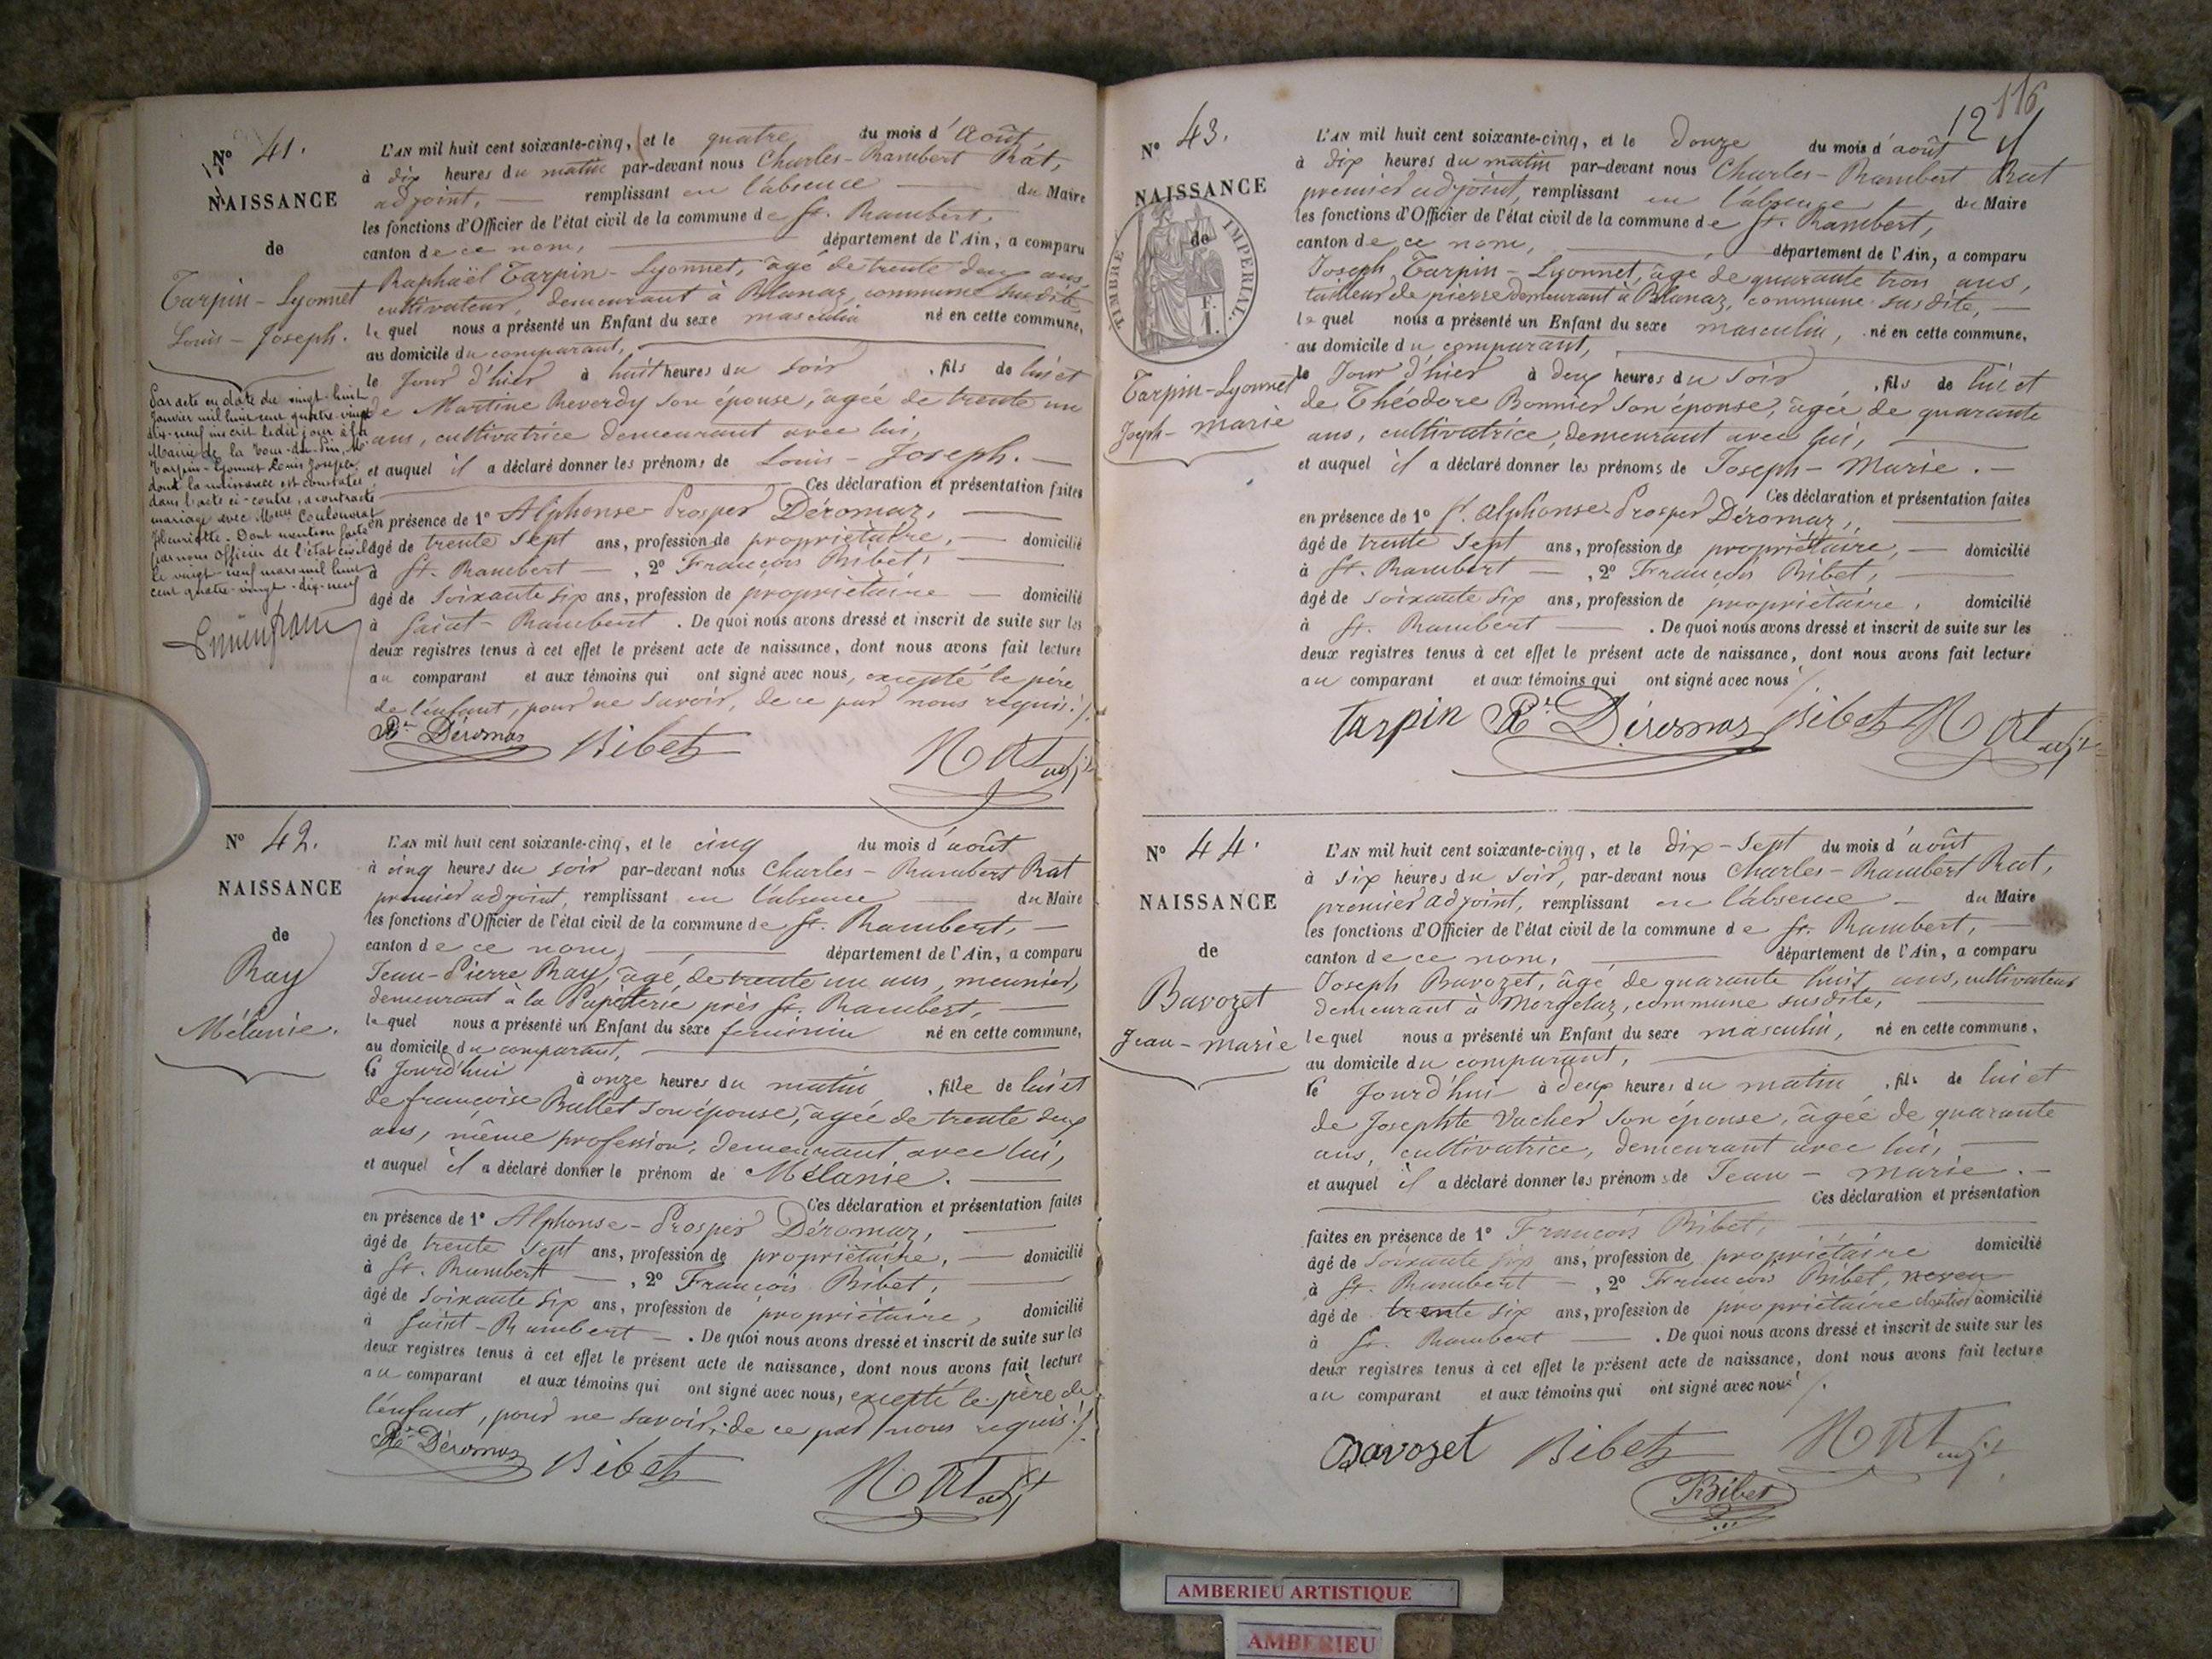 N° 41.
NAISSANCE
de
Tarpin-Lyonnet
Louis-Joseph.
Par acte en date du vingt-huit
Janvier mil huit cent quatre-vingt
dix-neuf inscrit ledit jour à la
Mairie de la Tour-du-Pin, Mr
Tarpin-Lyonnet Louis Joseph
dont la naissance est constatée
dans l'acte ci-contre, a contracté
mariage avec Melle Coulouvrat
Henriette. Dont mention faite
par nous officier de l'état civil
le vingt-neuf mars mil huit
cent quatre-vingt-dix-neuf
L'AN mil huit cent soixante-cinq, et le quatre du mois d'août,
à dix heures du matin par-devant nous Charles-Rambert Rat,
adjoint, remplissant en l'absence du Maire
les fonctions d'Officier de l'état civil de la commune de St. Rambert,
canton de ce nom, département de l'Ain, a comparu
Raphaël Tarpin-Lyonnet, âgé de trente deux ans,
cultivateur, demeurant à Blanaz, commune susdite,
lequel nous a présenté un Enfant du sexe masculin né en cette commune,
au domicile du comparant,
le jour d'hier à huit heures du soir, fils de lui et
de Martine Reverdy son épouse, âgée de trente un
ans, cultivatrice demeurant avec lui,
et auquel il a déclaré donner les prénoms de Louis-Joseph.
Ces déclaration et présentation faites
en présence de 1° Alphonse-Prosper Déromaz,
âgé de trente sept ans, profession de propriétaire, domicilié
à St. Rambert, 2° François Bibet,
âgé de soixante six ans, profession de propriétaire domicilié
à Saint-Rambert. De quoi nous avons dressé et inscrit de suite sur les
deux registres tenus à cet effet le présent acte de naissance, dont nous avons fait lecture
au comparant et aux témoins qui ont signé avec nous, excepté le père
de l'enfant, pour ne savoir, de ce par nous requis./.
Déromaz Bibet Rat adjt
N° 42.
NAISSANCE
de
Ray
Mélanie.
L'AN mil huit cent soixante-cinq, et le cinq du mois d'août
à cinq heures du soir par-devant nous Charles-Rambert Rat
premier adjoint, remplissant en l'absence du Maire
les fonctions d'Officier de l'état civil de la commune de St. Rambert,
canton de ce nom, département de l'Ain, a comparu
Jean-Pierre Ray, âgé de trente un ans, meunier,
demeurant à la Papeterie près St. Rambert,
lequel nous a présenté un Enfant du sexe féminin né en cette commune,
au domicile du comparant,
le Jourd'hui à onze heures du matin, fille de lui et
de françoise Bullet son épouse, âgée de trente deux
ans, même profession, demeurant avec lui,
et auquel il a déclaré donner le prénom de Mélanie.
Ces déclaration et présentation faites
en présence de 1° Alphonse-Prosper Déromaz,
âgé de trente sept ans, profession de propriétaire, domicilié
à St. Rambert, 2° François Bibet,
âgé de soixante six ans, profession de propriétaire, domicilié
à Saint-Rambert. De quoi nous avons dressé et inscrit de suite sur les
deux registres tenus à cet effet le présent acte de naissance, dont nous avons fait lecture
au comparant et aux témoins qui ont signé avec nous, excepté le père de
l'enfant, pour ne savoir, de ce par nous requis./.
Déromaz Bibet Rat adjt
116
12
N° 43.
NAISSANCE
de
TIMBRE IMPERIAL
1 F.
Tarpin-Lyonnet
Joseph-Marie
L'AN mil huit cent soixante-cinq, et le douze du mois d'août
à dix heures du matin par-devant nous Charles-Rambert Rat
premier adjoint, remplissant en l'absence du Maire
les fonctions d'Officier de l'état civil de la commune de St. Rambert,
canton de ce nom, département de l'Ain, a comparu
Joseph Tarpin-Lyonnet, âgé de quarante trois ans,
tailleur de pierre demeurant à Blanaz, commune susdite,
lequel nous a présenté un Enfant du sexe masculin, né en cette commune,
au domicile du comparant,
le Jour d'hier à deux heures du soir, fils de lui et
de Théodore Bonnier son épouse, âgée de quarante
ans, cultivatrice, demeurant avec lui,
et auquel il a déclaré donner les prénoms de Joseph-Marie.
Ces déclaration et présentation faites
en présence de 1° Alphonse-Prosper Déromaz,
âgé de trente sept ans, profession de propriétaire, domicilié
à St. Rambert, 2° François Bibet,
âgé de soixante six ans, profession de propriétaire, domicilié
à St. Rambert. De quoi nous avons dressé et inscrit de suite sur les
deux registres tenus à cet effet le présent acte de naissance, dont nous avons fait lecture
au comparant et aux témoins qui ont signé avec nous./.
tarpin Déromaz Bibet Rat adjt
N° 44.
NAISSANCE
de
Bavozet
Jean-Marie
L'AN mil huit cent soixante-cinq, et le dix-sept du mois d'août
à six heures du soir, par-devant nous Charles-Rambert Rat,
premier adjoint, remplissant en l'absence du Maire
les fonctions d'Officier de l'état civil de la commune de St. Rambert,
canton de ce nom, département de l'Ain, a comparu
Joseph Bavozet, âgé de quarante huit ans, cultivateur
demeurant à Morgelaz, commune susdite,
lequel nous a présenté un Enfant du sexe masculin, né en cette commune,
au domicile du comparant,
le Jourd'hui à deux heures du matin, fils de lui et
de Josephte Vacher son épouse, âgée de quarante
ans, cultivatrice, demeurant avec lui,
et auquel il a déclaré donner les prénoms de Jean-Marie.
Ces déclaration et présentation
faites en présence de 1° François Bibet,
âgé de soixante six ans, profession de propriétaire domicilié
à St. Rambert, 2° François Bibet, neveu
âgé de trente six ans, profession de propriétaire domicilié
à St. Rambert. De quoi nous avons dressé et inscrit de suite sur les
deux registres tenus à cet effet le présent acte de naissance, dont nous avons fait lecture
au comparant et aux témoins qui ont signé avec nous./.
Bavozet Bibet Rat adjt
Bibet
AMBERIEU ARTISTIQUE
AMBERIEU